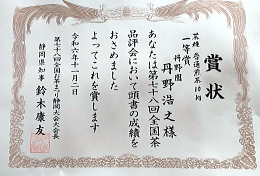 賞状
茶種 普通煎茶10kg
一等賞
丹野園
丹野浩之様
あなたは第七十八回全国茶
品評会において頭書の成績を
おさめました
よってこれを賞します
令和六年十一月二日
第七十八回全国お茶まつり静岡大会大会長
静岡県知事 鈴木康友